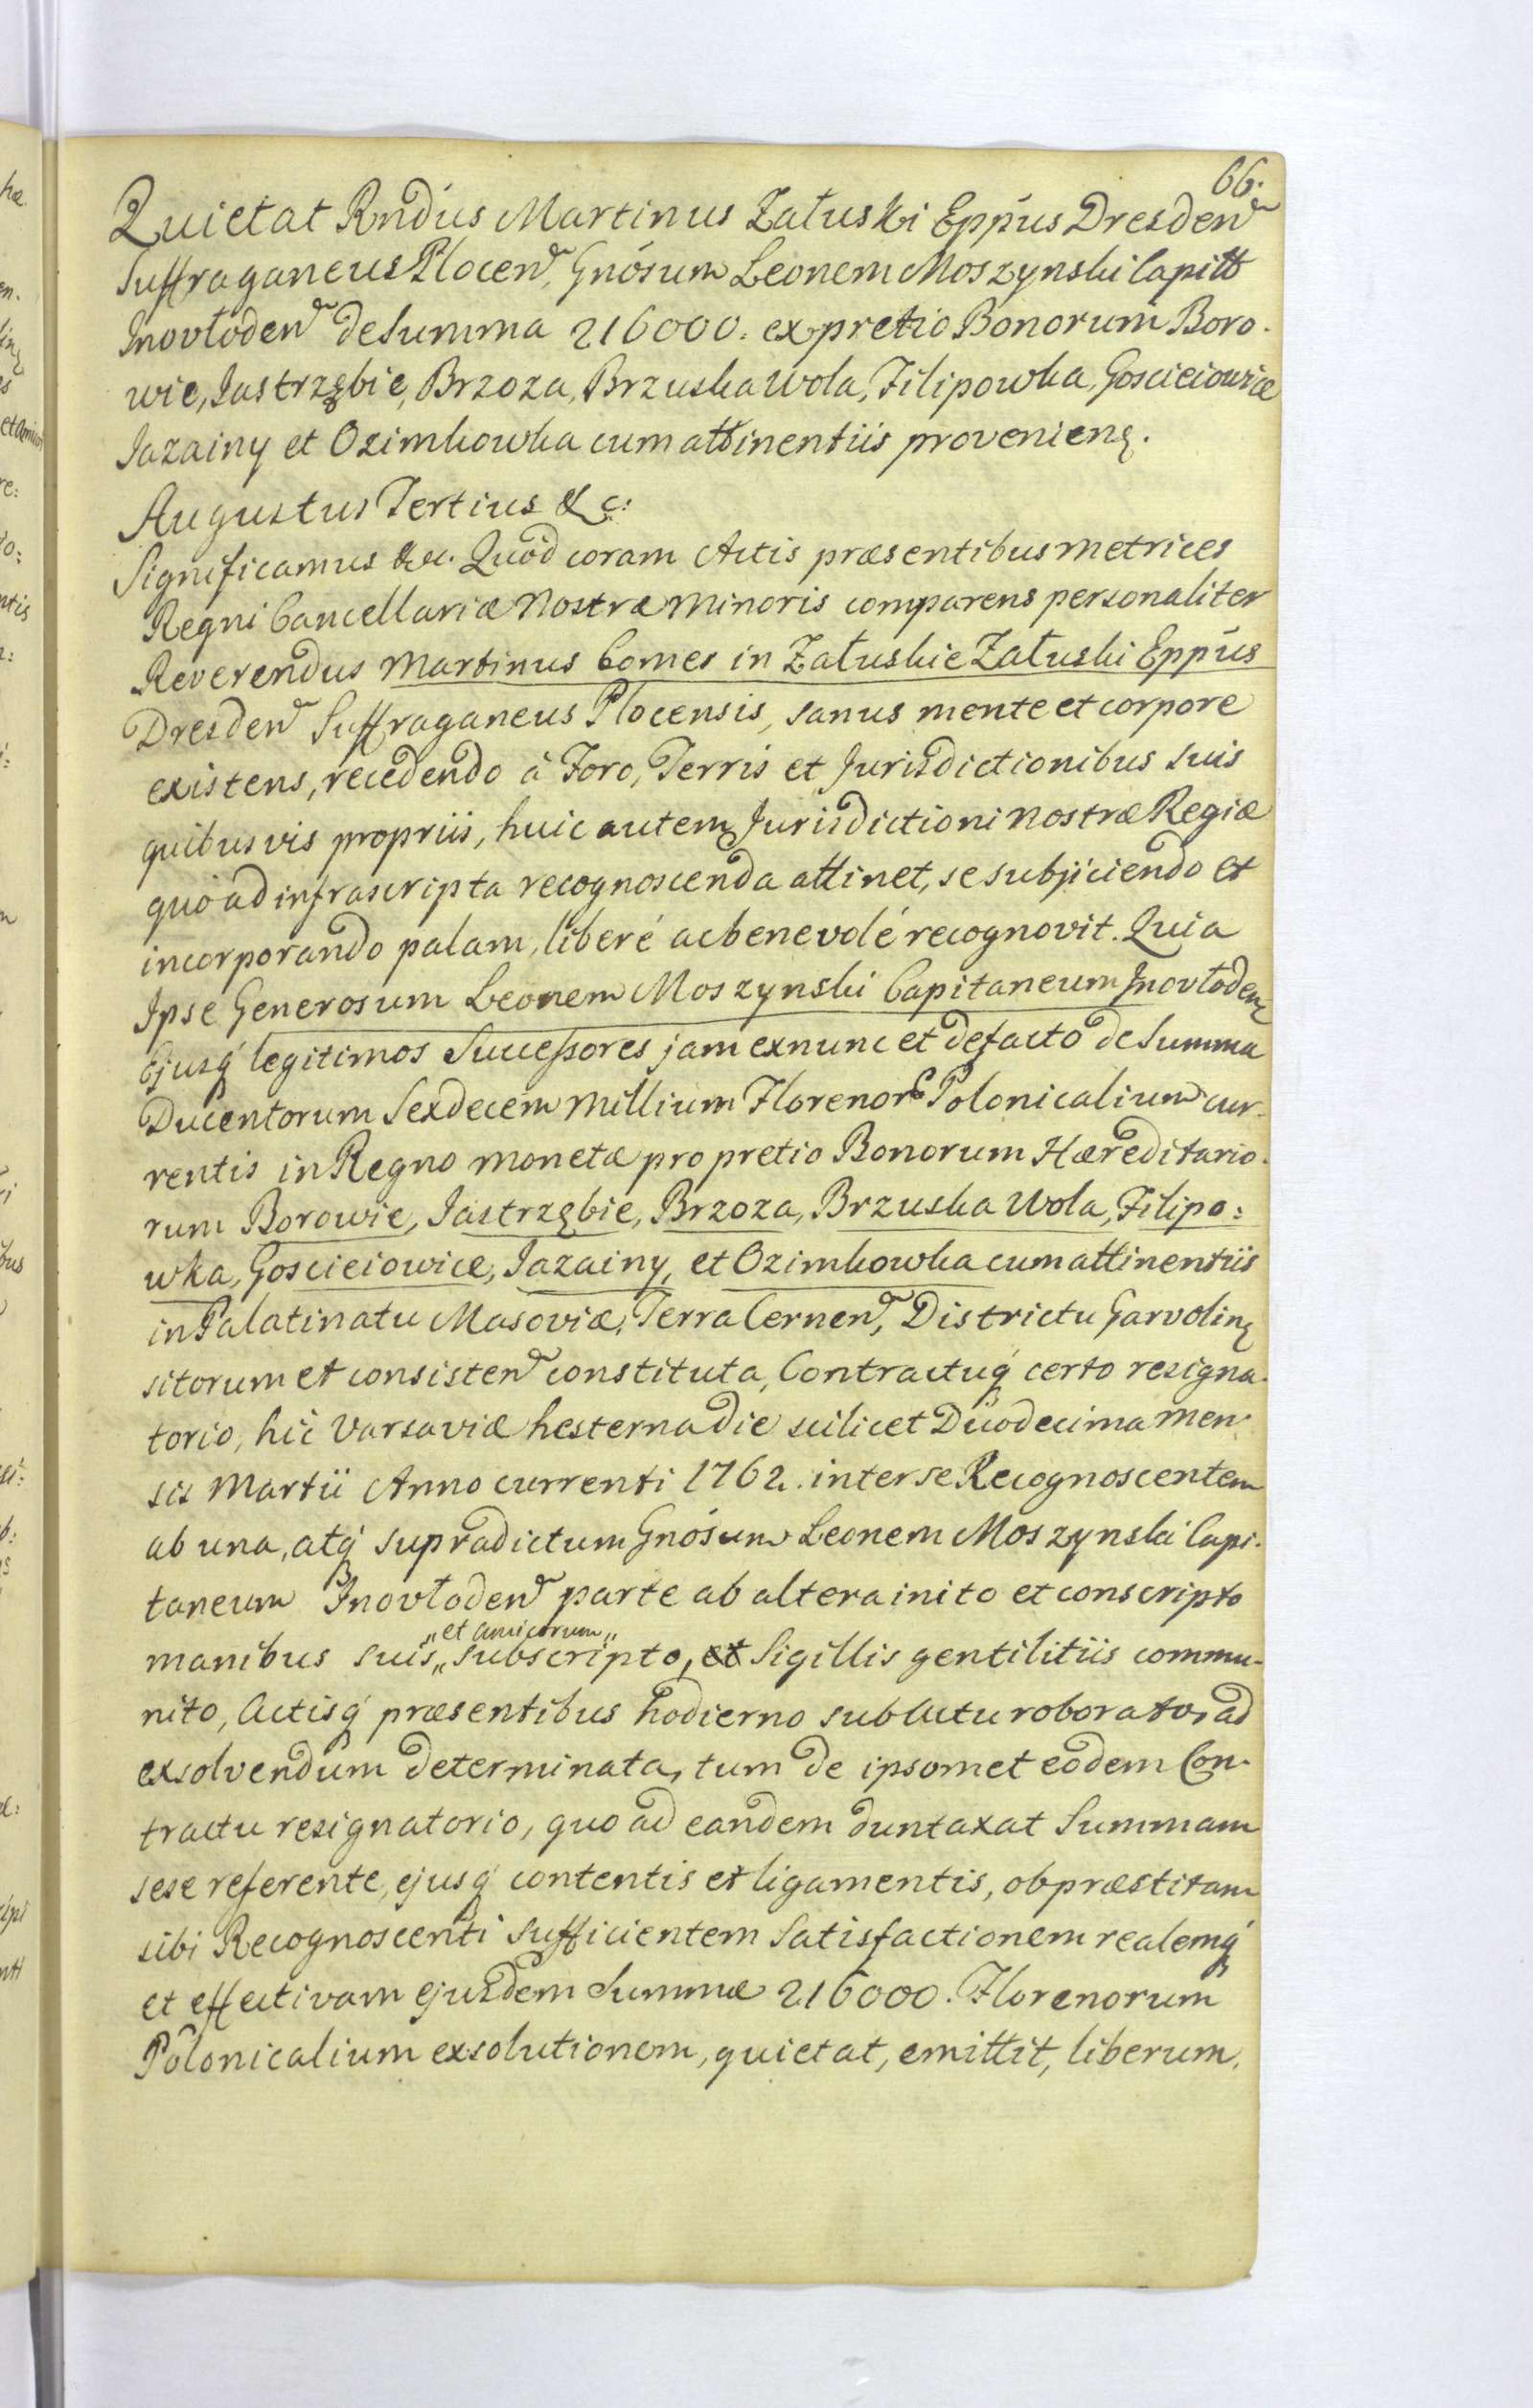 66.
Quietat Rndus Martinus Załuski Eppus Dresden
Suffraganeus Plocen, Gnosum Leonem Moszynski Capitt
Inovłoden de Summa 216000. ex pretio Bonorum Boro.
wie, Jastrzębie, Brzoza, Brzuska Wola, Filipowka, Goscieiowice
Jazainy et Ozimkowka cum attinentiis provenien.
Augustus Tertius &c:
Significamus &c. Quod coram Actis præsentibus Metrices
Regni Cancellariæ Nostræ Minoris comparens personaliter
Reverendus Martinus Comes in Załuskie Załuski Eppus
Dresden Suffraganeus Plocensis, sanus mente et corpore
existens, recedendo à Foro, Terris et Jurisdictionibus suis
quibusvis propriis, huic autem Jurisdictioni Nostræ Regiæ
quo ad infrascripta recognoscenda attinet, se subjiciendo et
incorporando palam, liberé ac benevolé recognovit. Quia
Ipse Generosum Leonem Moszynski Capitaneum Inovłoden
Ejusq legitimos Successores jam exnunc et defacto de Summa
Ducentorum Sexdecem Millium Florenor Polonicalium cur-
rentis in Regno monetæ pro pretio Bonorum Hæreditario.
rum Borowie, Jastrzębie, Brzoza, Brzuska Wola, Filipo:
wka, Goscieiowice, Jazainy, et Ozimkowka cum attinentiis
in Palatinatu Masoviæ, Terra Cernen, Districtu Garvolin
sitorum et consisten constituta, Contractuq certo resigna-
torio, hic Varsaviæ hesterna die scilicet Duodecima Men-
sis Martii Anno currenti 1762. inter se Recognoscentem
ab una, atq supradictum Gnosum Leonem Moszynski Capi-
taneum Inovłoden parte ab altera inito et conscripto
„et amicorum„
manibus suis„ subscripto, et Sigillis gentilitiis commu-
nito, Actisq præsentibus hodierno sub Actu roborato, ad
exsolvendum determinata, tum de ipsomet eodem Con-
tractu resignatorio, quo ad eandem duntaxat Summam
sese referente, ejusq contentis et ligamentis, ob præstitam
sibi Recognoscenti sufficientem Satisfactionem realemq
et effectivam ejusdem Summæ 216000. Florenorum
Polonicalium exsolutionem, quietat, emittit, liberum,